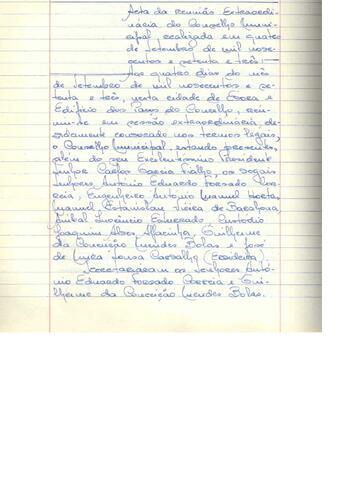 Acta da reunião Extraordi-
nária do Conselho Munici-
pal, realizada em quatro
de Setembro de mil nove-
centos e setenta e três.
Aos quatro dias do mês
de Setembro de mil novecentos e se-
tenta e três, nesta cidade de Évora e
Edifício dos Paços do Concelho, reu-
niu-se em sessão extraordinária, de-
vidamente convocado nos termos legais,
o Conselho Municipal, estando presentes,
além do seu Excelentíssimo Presidente
Senhor Carlos Garcia Fialho, os vogais
Senhores António Eduardo Torrado
Engenheiro António Manuel
Manuel Estanislau Vieira de Barahona
Aníbal Inocêncio Esmerado, Custódio
Joaquim Alves Alfacinha, Guilherme
da Conceição Mendes Bolas e José
de Lyra Sousa Carvalho
Secretariaram os Senhores Antó-
nio Eduardo Torrado Correia e Gui-
lherme da Conceição Mendes Bolas.